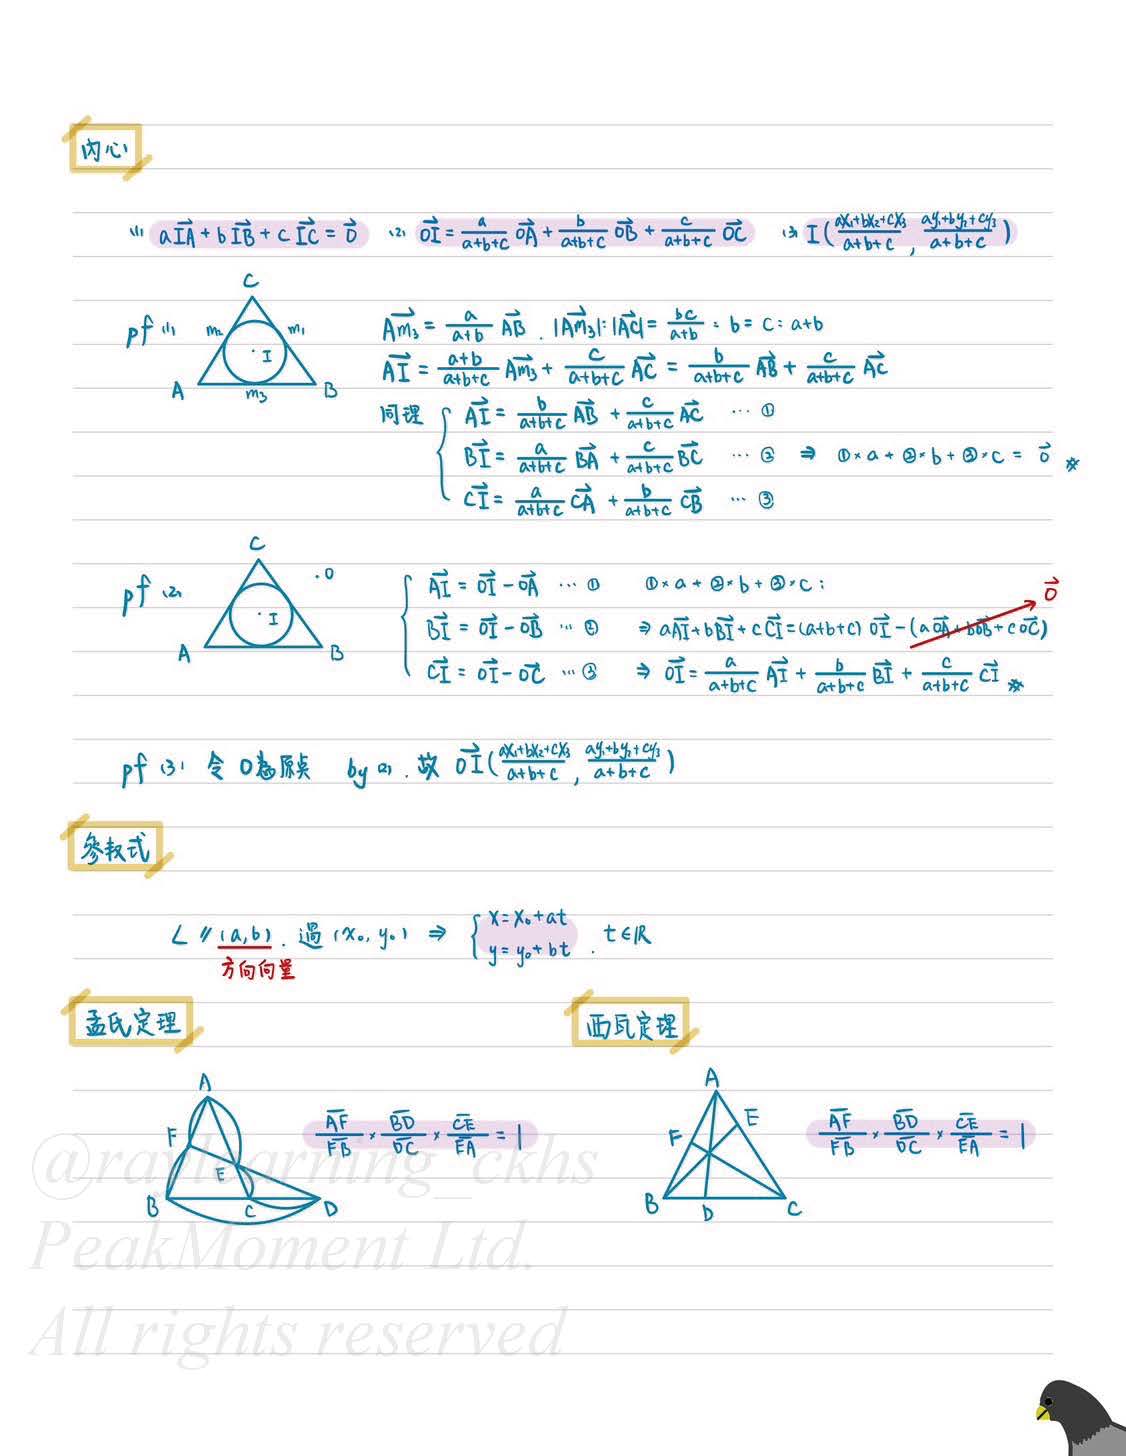 內心
(1) aIA⃗ + bIB⃗ + cIC⃗ = 0⃗ (2) OI⃗ = a/(a+b+c) OA⃗ + b/(a+b+c) OB⃗ + c/(a+b+c) OC⃗ (3) I( (ax₁+bx₂+cx₃)/(a+b+c) , (ay₁+by₂+cy₃)/(a+b+c) )
pf (1)
C
m₂ m₁
I
A m₃ B
Am₃⃗ = a/(a+b) AB⃗ . |Am₃⃗|:|AC⃗| = bc/(a+b) : b = c : a+b
AI⃗ = (a+b)/(a+b+c) Am₃⃗ + c/(a+b+c) AC⃗ = b/(a+b+c) AB⃗ + c/(a+b+c) AC⃗
同理 { AI⃗ = b/(a+b+c) AB⃗ + c/(a+b+c) AC⃗ … ①
BI⃗ = a/(a+b+c) BA⃗ + c/(a+b+c) BC⃗ … ② ⇒ ①×a + ②×b + ③×c = 0⃗ ※
CI⃗ = a/(a+b+c) CA⃗ + b/(a+b+c) CB⃗ … ③
pf (2)
C
. O
I
A B
{ AI⃗ = OI⃗ - OA⃗ … ① ①×a + ②×b + ③×c :
0⃗
BI⃗ = OI⃗ - OB⃗ … ② ⇒ aAI⃗ + bBI⃗ + cCI⃗ = (a+b+c) OI⃗ - (aOA⃗ + bOB⃗ + cOC⃗)
CI⃗ = OI⃗ - OC⃗ … ③ ⇒ OI⃗ = a/(a+b+c) AI⃗ + b/(a+b+c) BI⃗ + c/(a+b+c) CI⃗ ※
pf (3) 令O為原点 by (2) . 故 OI⃗( (ax₁+bx₂+cx₃)/(a+b+c) , (ay₁+by₂+cy₃)/(a+b+c) )
參数式
L // (a,b) . 過 (x₀, y₀) ⇒ { x = x₀ + at
y = y₀ + bt . t∈ℝ
方向向量
孟氏定理
A
F
E
B C D
AF/FB × BD/DC × CE/EA = 1
西瓦定理
A
E
F
B D C
AF/FB × BD/DC × CE/EA = 1
@raylearning_ckhs
PeakMoment Ltd.
All rights reserved